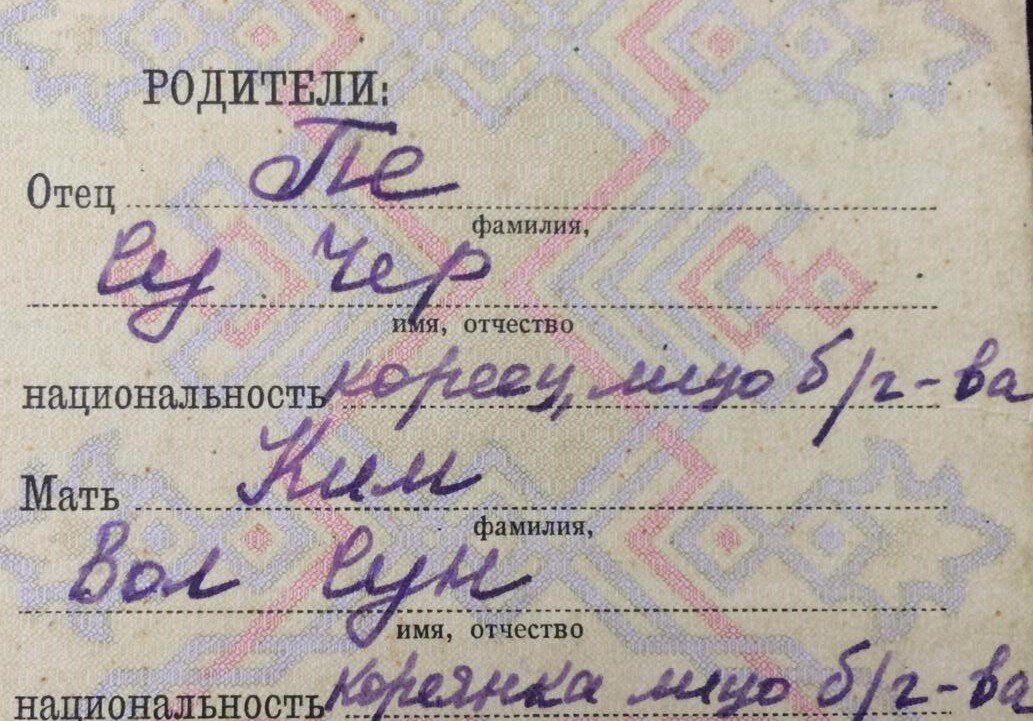 РОДИТЕЛИ:
Отец Пе
фамилия,
Су Чер
имя, отчество
национальность кореец, лицо б/г-ва
Мать Ким
фамилия,
Вол Сун
имя, отчество
национальность кореянка лицо б/г-ва